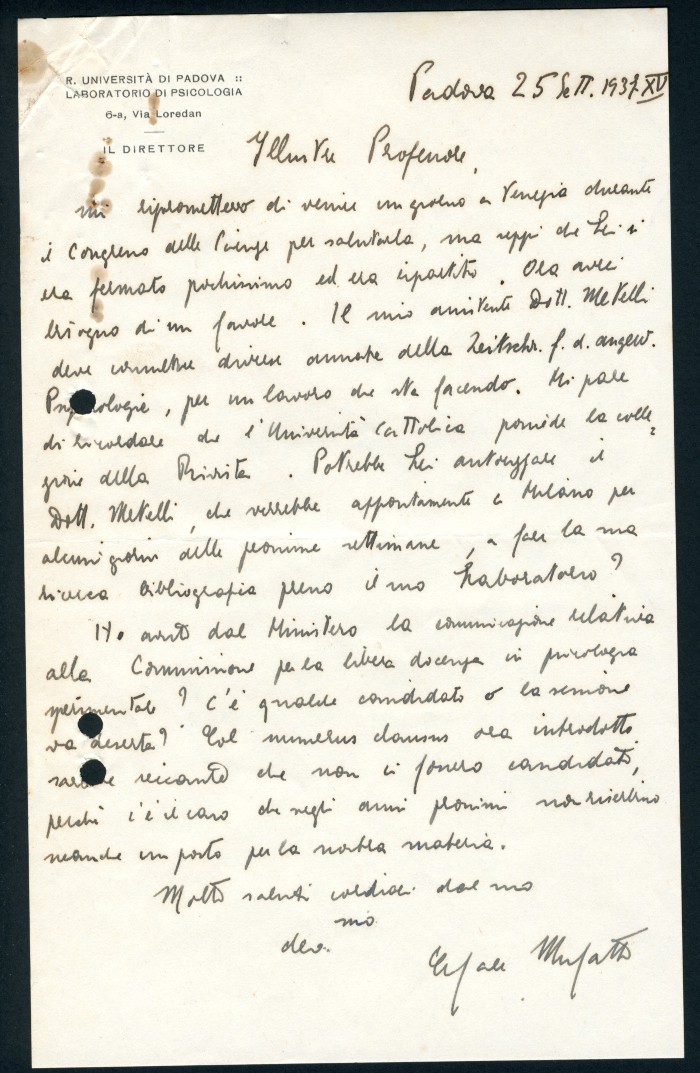 R. UNIVERSITÀ DI PADOVA ::
LABORATORIO DI PSICOLOGIA
6-a, Via Loredan
IL DIRETTORE
Padova 25 Sett. 1937. XV
Illustre Professore,
mi ripromettevo di venire un giorno a Venezia durante
il Congresso delle Scienze per salutarla, ma seppi che Lei si
era fermato pochissimo ed era ripartito. Ora avrei
bisogno di un favore. Il mio assistente Dott. Metelli
deve consultare diverse annate della Zeitschr. f. d. angew.
Psychologie, per un lavoro che sta facendo. Mi pare
di ricordare che l'Università Cattolica possiede la colle-
zione della Rivista. Potrebbe Lei autorizzare il
Dott. Metelli, che verrebbe appositamente a Milano per
alcuni giorni delle prossime settimane, a fare la sua
ricerca bibliografica presso il suo Laboratorio?
Ha avuto dal Ministero la comunicazione relativa
alla Commissione per la libera docenza in psicologia
sperimentale? C'è qualche candidato o la sessione
va deserta? Col numerus clausus ora introdotto
sarebbe seccante che non ci fossero candidati,
perchè c'è il caso che negli anni prossimi non riserbino
neanche un posto per la nostra materia.
Molti saluti cordiali dal suo
dev.mo
Cesare Musatti